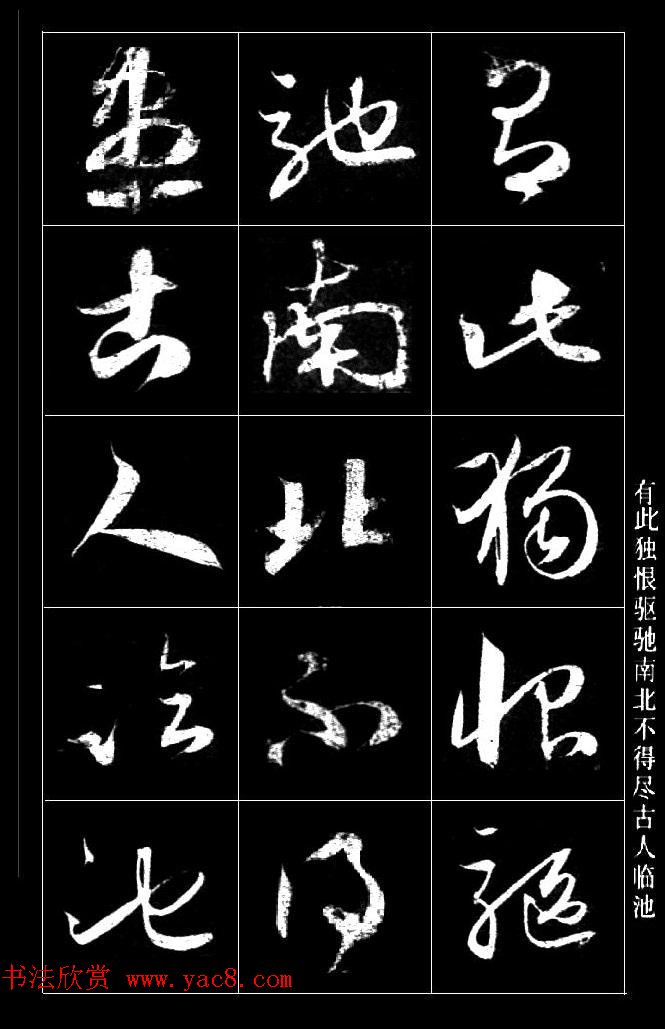 有此獨恨驅
馳南北不得
盡古人臨池
有此独恨驱驰南北不得尽古人临池
书法欣赏 www.yac8.com